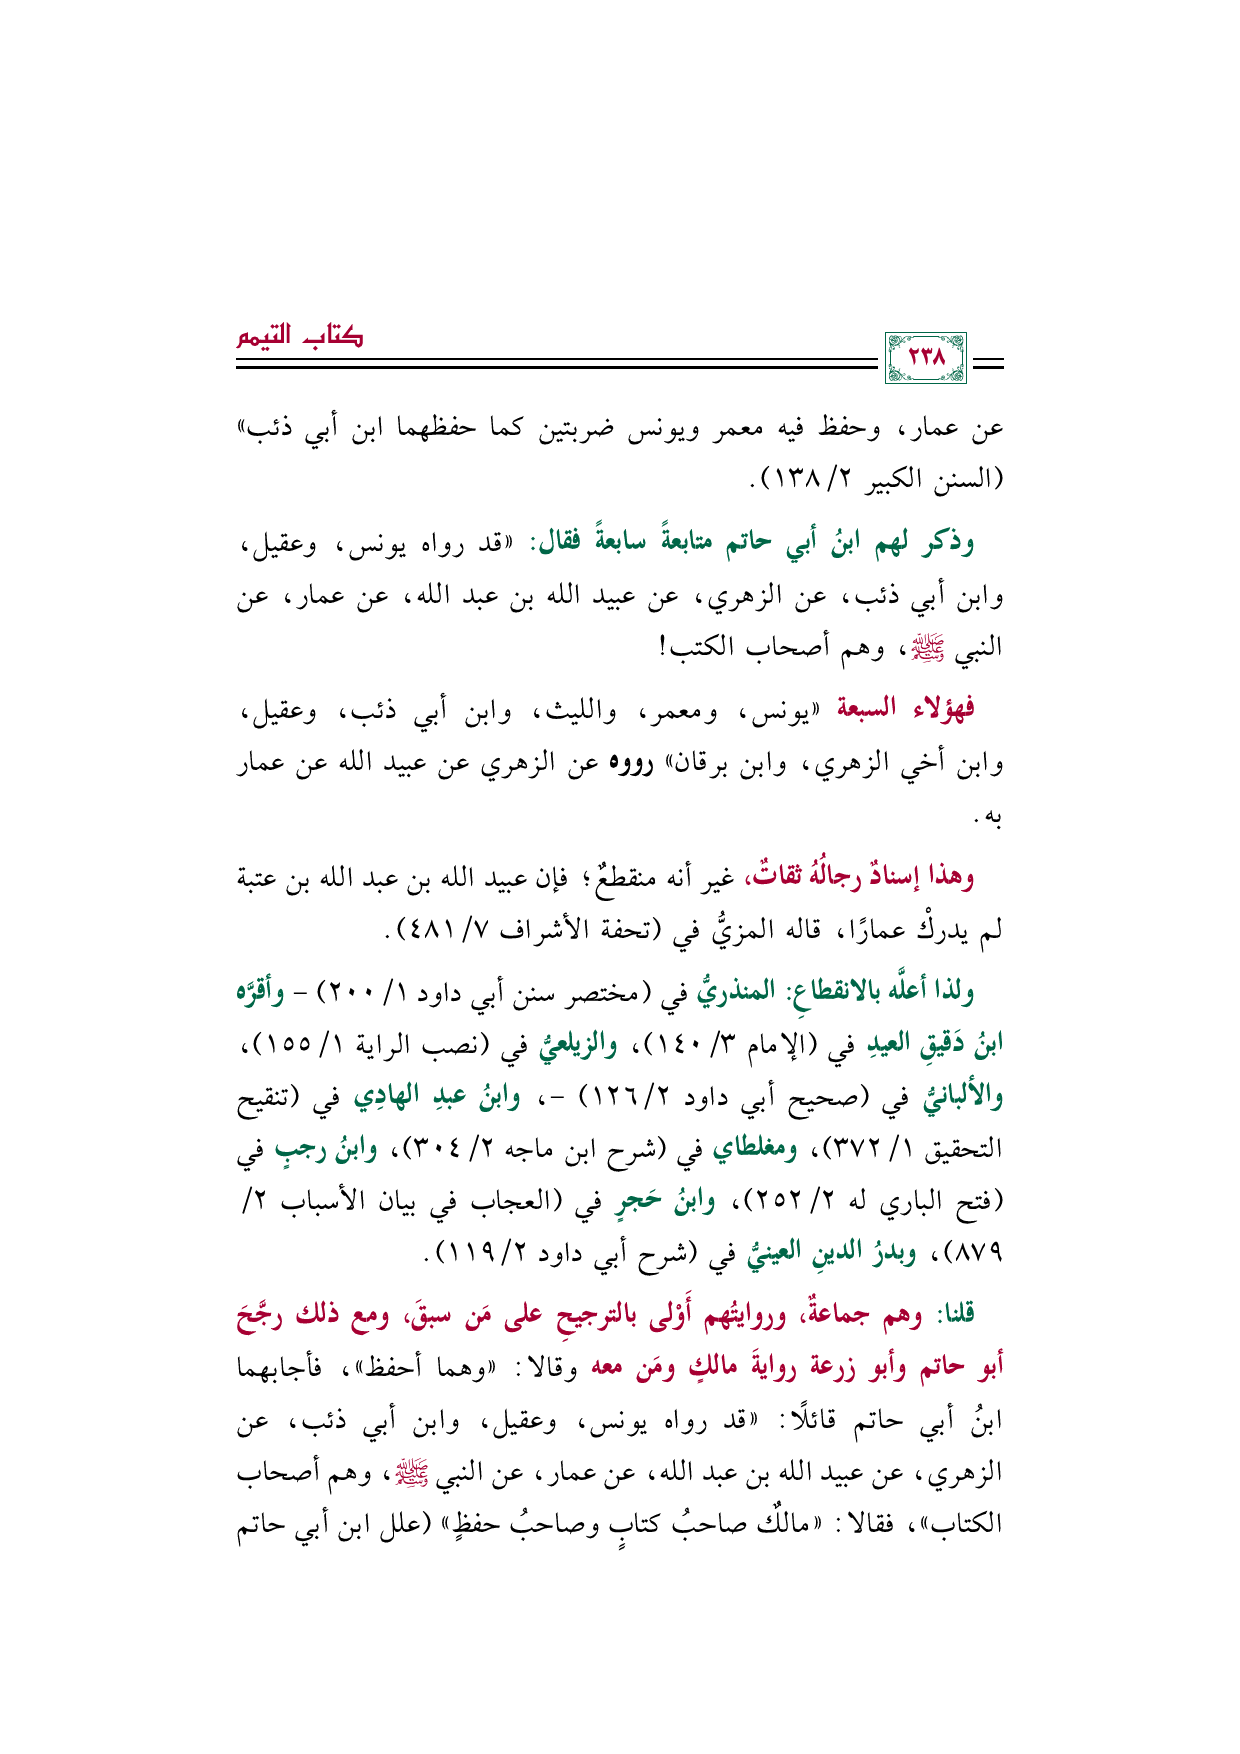 كتاب التيمم
٢٣٨
عن عمار، وحفظ فيه معمر ويونس ضربتين كما حفظهما ابن أبي ذئب»
(السنن الكبير ٢/ ١٣٨).
وذكر لهم ابنُ أبي حاتم متابعةً سابعةً فقال: «قد رواه يونس، وعقيل،
وابن أبي ذئب، عن الزهري، عن عبيد الله بن عبد الله، عن عمار، عن
النبي ﷺ، وهم أصحاب الكتب!
فهؤلاء السبعة «يونس، ومعمر، والليث، وابن أبي ذئب، وعقيل،
وابن أخي الزهري، وابن برقان» رووه عن الزهري عن عبيد الله عن عمار
به.
وهذا إسنادٌ رجالُهُ ثقاتٌ، غير أنه منقطعٌ؛ فإن عبيد الله بن عبد الله بن عتبة
لم يدركْ عمارًا، قاله المزيُّ في (تحفة الأشراف ٧/ ٤٨١).
ولذا أعلَّه بالانقطاعِ: المنذريُّ في (مختصر سنن أبي داود ١/ ٢٠٠) - وأقرَّه
ابنُ دَقيقِ العيدِ في (الإمام ٣/ ١٤٠)، والزيلعيُّ في (نصب الراية ١/ ١٥٥)،
والألبانيُّ في (صحيح أبي داود ٢/ ١٢٦) -، وابنُ عبدِ الهادِي في (تنقيح
التحقيق ١/ ٣٧٢)، ومغلطاي في (شرح ابن ماجه ٢/ ٣٠٤)، وابنُ رجبٍ في
(فتح الباري له ٢/ ٢٥٢)، وابنُ حَجرٍ في (العجاب في بيان الأسباب ٢/
٨٧٩)، وبدرُ الدينِ العينيُّ في (شرح أبي داود ٢/ ١١٩).
قلنا: وهم جماعةٌ، وروايتُهم أَوْلى بالترجيحِ على مَن سبقَ، ومع ذلك رجَّحَ
أبو حاتم وأبو زرعة روايةَ مالكٍ ومَن معه وقالا: «وهما أحفظ»، فأجابهما
ابنُ أبي حاتم قائلًا: «قد رواه يونس، وعقيل، وابن أبي ذئب، عن
الزهري، عن عبيد الله بن عبد الله، عن عمار، عن النبي ﷺ، وهم أصحاب
الكتاب»، فقالا: «مالكٌ صاحبُ كتابٍ وصاحبُ حفظٍ» (علل ابن أبي حاتم